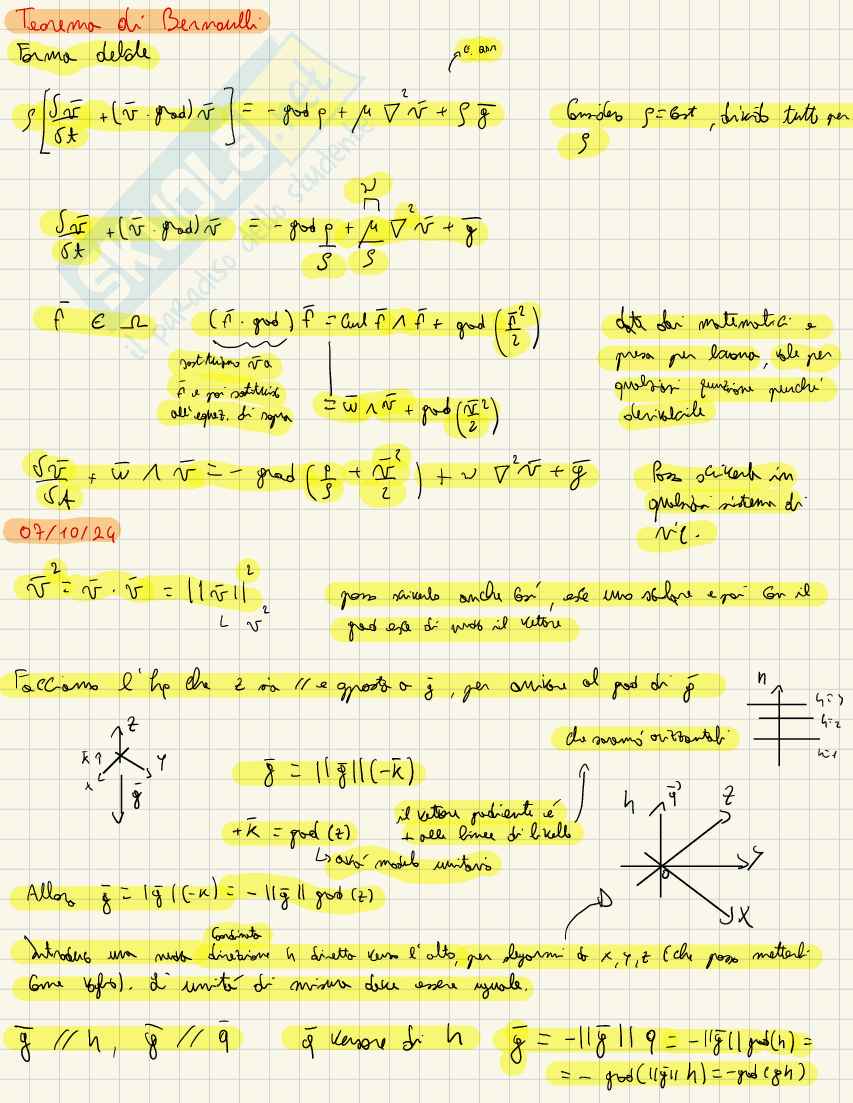 Teorema di Bernoulli
Forma debole
ρ[δv̄/δt + (v̄ · grad) v̄] = - grad p + μ ∇² v̄ + ρ ḡ
Considero ρ = cost, divido tutto per ρ
δv̄/δt + (v̄ · grad) v̄ = - grad p/ρ + μ/ρ ∇² v̄ + ḡ
ν
f̄ ∈ Ω (f̄ · grad) f̄ = curl f̄ ∧ f̄ + grad (f̄²/2)
sostituisco v̄ a
f̄ e poi sostituisco
all'equaz. di sopra
= w̄ ∧ v̄ + grad (v̄²/2)
data dai matematici e
presa per buona, vale per
qualsiasi funzione purché
derivabile
δv̄/δt + w̄ ∧ v̄ = - grad (p/ρ + v̄²/2) + ν ∇² v̄ + ḡ
Posso scriverla in
qualsiasi sistema di
07/10/24
v̄² = v̄ · v̄ = ||v̄||²
v²
posso scriverlo anche così, esce uno scalare e poi con il
grad esce di nuovo il vettore
Facciamo l'hp che z sia // e opposto a ḡ, per arrivare al grad di
n
h=3
h=2
h=1
z
k̄ ↑
x
y
ḡ
ḡ = ||ḡ|| (-k̄)
che saranno orizzontali
+k̄ = grad (z)
avrà modulo unitario
il vettore gradiente è
⊥ alle linee di livello
h
q̄
z
y
x
0
Allora ḡ = |ḡ| (-k) = - ||ḡ|| grad (z)
coordinata
Introduco una nuova direzione h diretta verso l'alto, per slegarmi da x, y, z (che posso metterli
come voglio). L'unità di misura deve essere uguale.
ḡ // h, ḡ // q̄ q̄ versore di h ḡ = -||ḡ|| q = -||ḡ|| grad(h) =
= - grad (||ḡ|| h) = - grad (gh)
SKUOLA.net
il paradiso dello studente